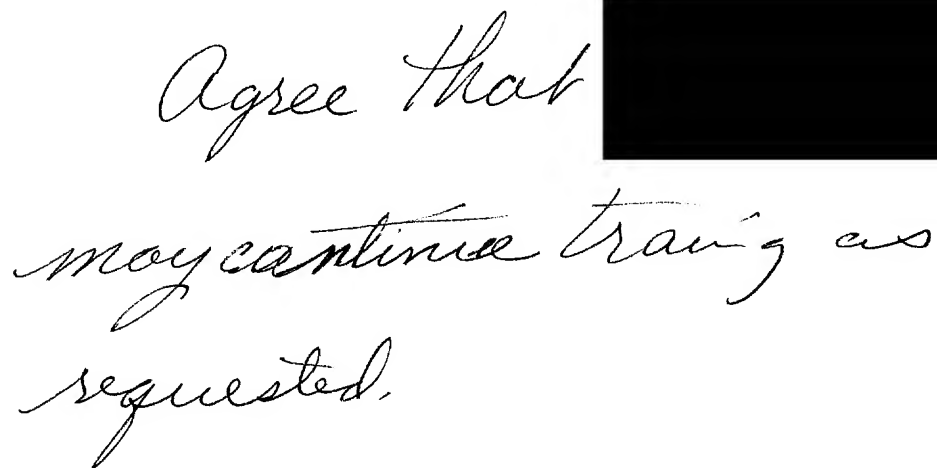 Agree that
may continue training as
requested.